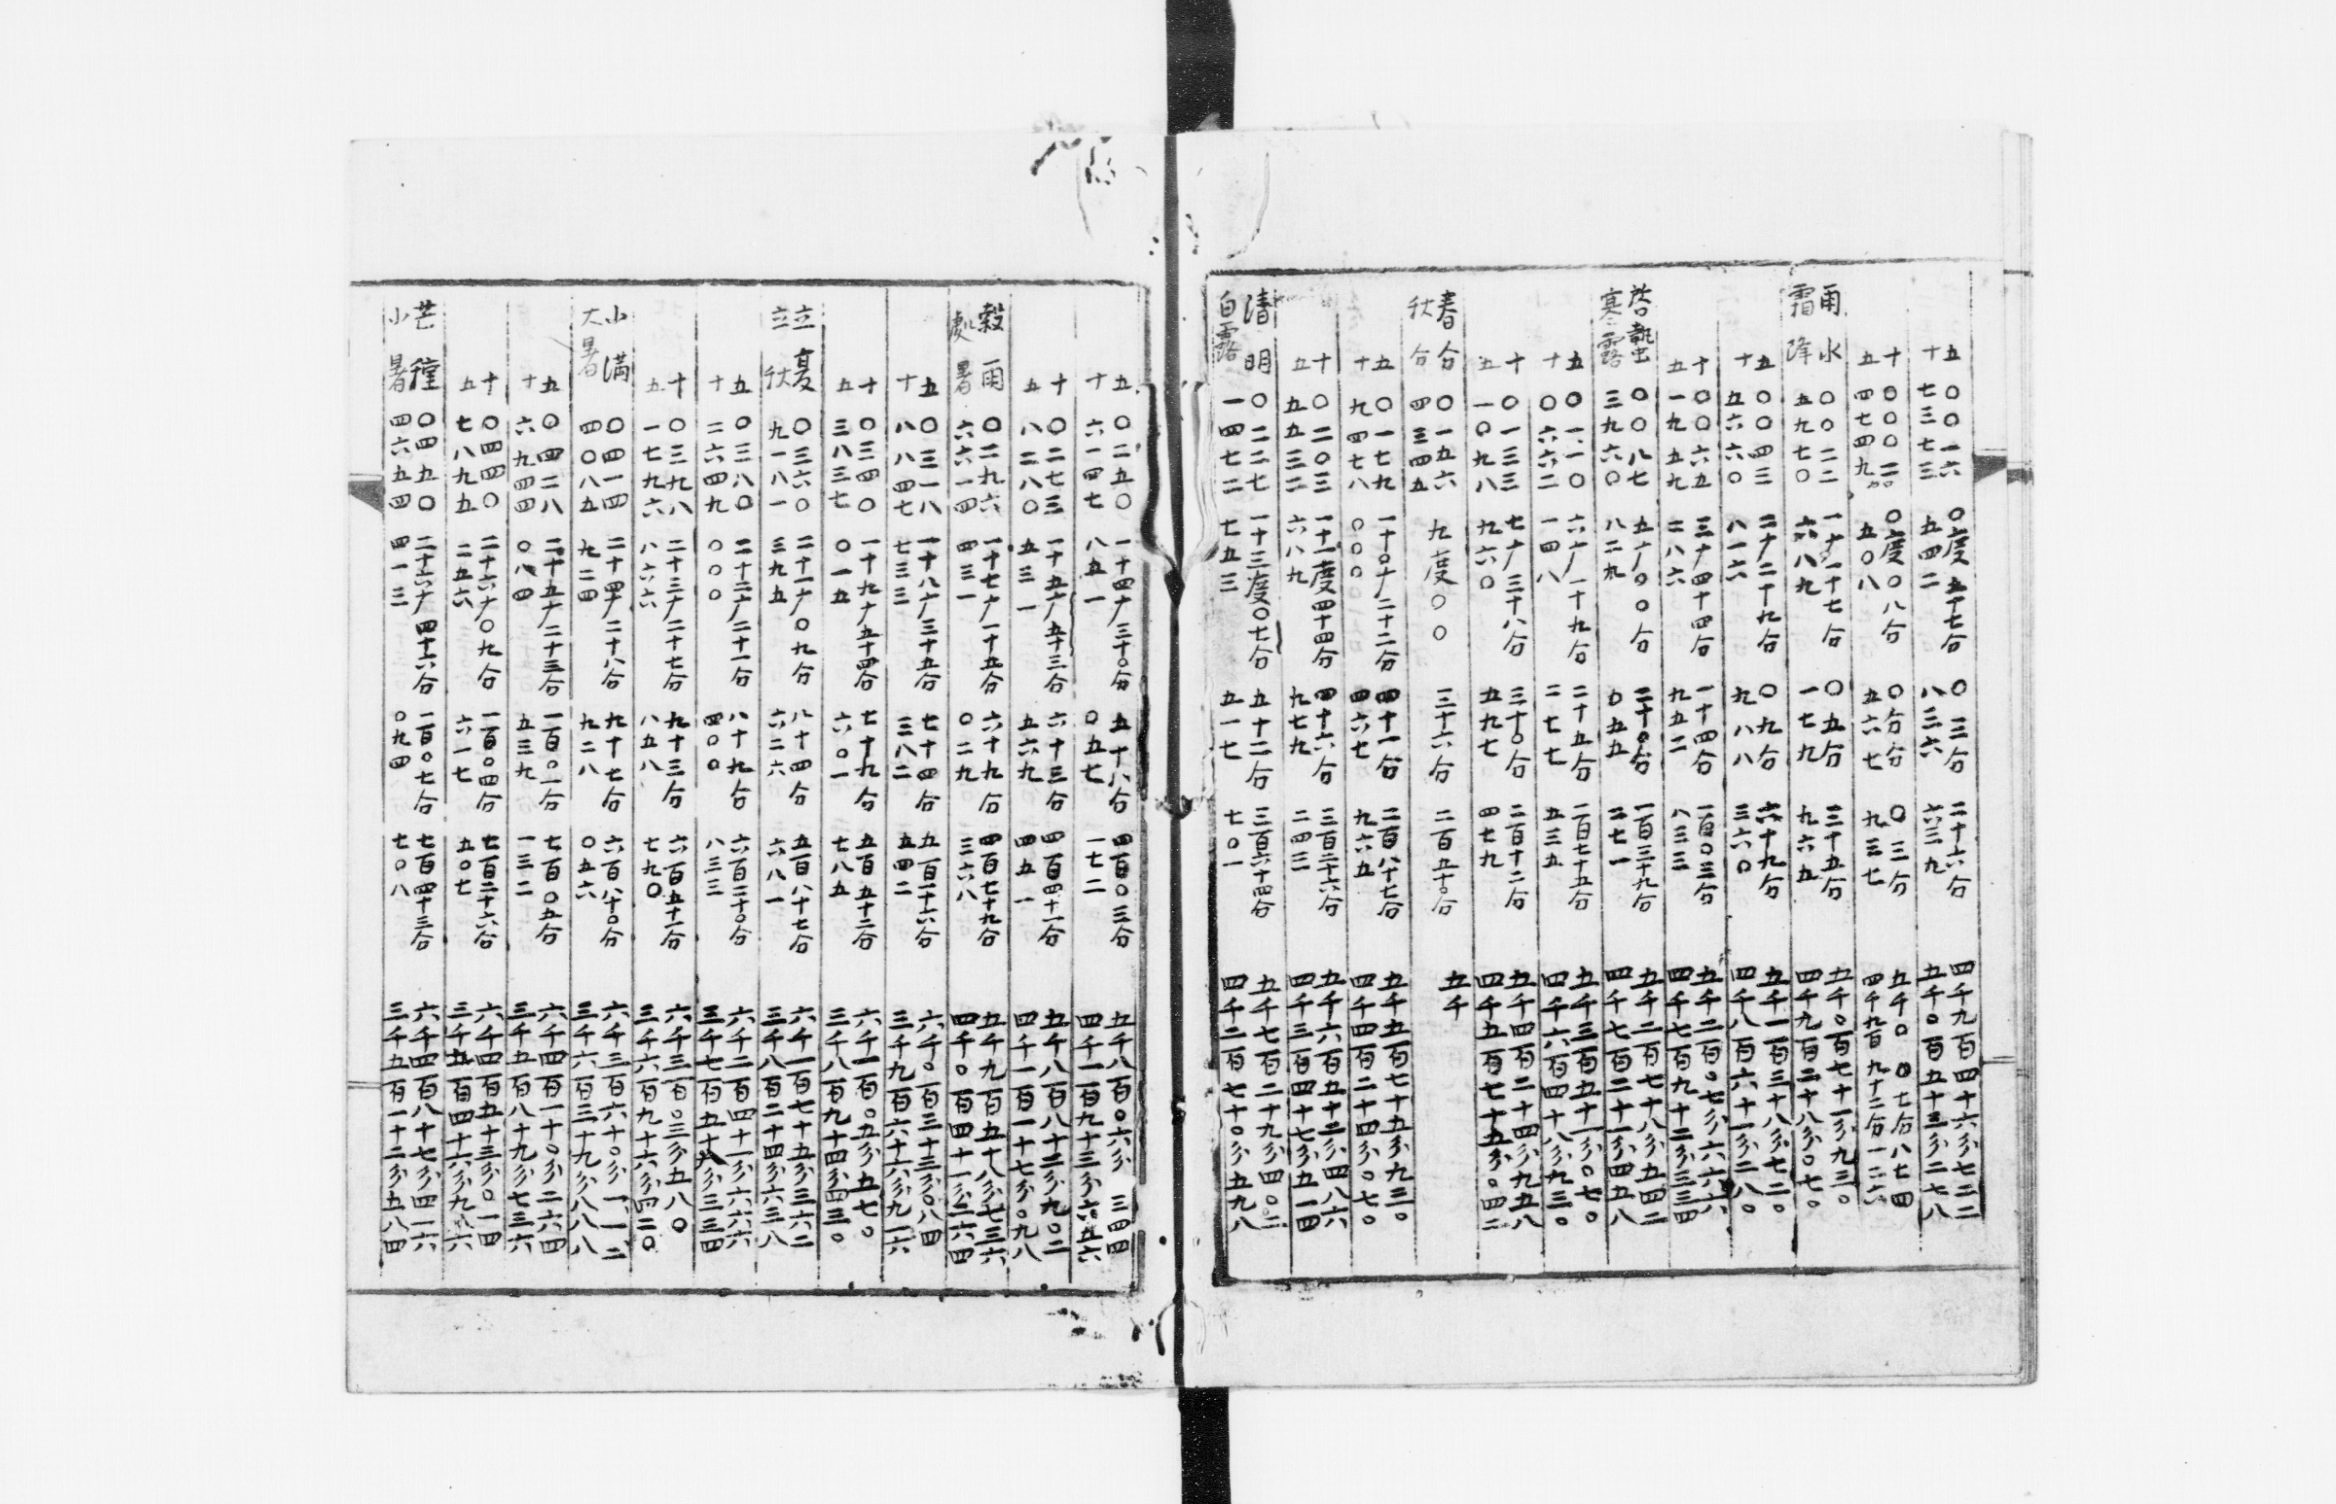 五 〇〇一六 〇度五十七分 〇三分 二十六分 四千九百四十六分七二二
十 七三七三 五四二 八三六 六三九 五千〇百五十三分二七八
十 〇〇〇二 〇度〇八分 〇分分 〇三分 五千〇 〇七分八七四
五 四七四九 五〇八 五六七 九三七 四千九百九十二分一二六
雨水 〇〇二二 一广一十七分 〇五分 三十五分 五千〇百七十一分九三〇
霜降 五九七〇 六八九 一七九 九六五 四千九百二十八分〇七〇
五 〇〇四三 二广二十九分 〇九分 六十九分 五千一百三十八分七二〇
十 五六六〇 八一六 九八八 三六〇 四千八百六十一分二八〇
十 〇〇六五 三广四十四分 一十四分 一百〇三分 五千二百〇七分六六六
五 一九五九 二八六 九五二 八三三 四千七百九十二分三三四
啓蟄 〇〇八七 五广〇〇分 二十〇分 一百三十九分 五千二百七十八分五四二
寒露 三九六〇 八二九 〇五五 二七一 四千七百二十一分四五八
五 〇一一〇 六广一十九分 二十五分 一百七十五分 五千三百五十一分〇七〇
十 〇六六二 一四八 二七七 五三五 四千六百四十八分九三〇
十 〇一三三 七广三十八分 三十〇分 二百十二分 五千四百二十四分九五八
五 一〇九八 九六〇 五九七 四七九 四千五百七十五分〇四二
春分 〇一五六 九度〇〇 三十六分 二百五十〇分 五千
秋分 四三四五
五 〇一七九 一十〇广二十二分 四十一分 二百八十七分 五千五百七十五分九三〇
十 九四七八 〇〇〇 四六七 九六五 四千四百二十四分〇七〇
十 〇二〇三 一十一度四十四分 四十六分 三百二十六分 五千六百五十二分四八六
五 五五三二 六八九 九七九 二四三 四千三百四十七分五一四
清明 〇二二七 一十三度〇七分 五十二分 三百六十四分 五千七百二十九分四〇二
白露 一四七二 七五三 五一七 七〇一 四千二百七十〇分五九八
五 〇二五〇 一十四广三十〇分 五十八分 四百〇三分 五千八百〇六分三四四
十 六一四七 八五一 〇五七 一七二 四千一百九十三分六五六
十 〇二七三 一十五广五十三分 六十三分 四百四十一分 五千八百八十二分九〇二
五 八二八〇 五三一 五六九 四五一 四千一百一十七分〇九八
穀雨 〇二九六 一十七广一十五分 六十九分 四百七十九分 五千九百五十八分七三六
處暑 六六一四 四三一 〇二九 三六八 四千〇百四十一分二六四
十 〇三一八 一十八广三十五分 七十四分 五百一十六分 六千〇百三十三分〇八四
五 八八四七 七三三 三八二 五四二 三千九百六十六分九一六
十 〇三四〇 一十九广五十四分 七十九分 五百五十二分 六千一百〇五分五七〇
五 三八三七 〇一五 六〇一 七八五 三千八百九十四分四三〇
立夏 〇三六〇 二十一广〇九分 八十四分 五百八十七分 六千一百七十五分三六二
立秋 九一八一 三九五 六二六 六八一 三千八百二十四分六三八
五 〇三八〇 二十二广二十一分 八十九分 六百二十〇分 六千二百四十一分六六六
十 二六四九 〇〇〇 四〇〇 八三三 三千七百五十八分三三四
十 〇三九八 二十三广二十七分 九十三分 六百五十一分 六千三百〇三分五八〇
五 一七九六 八六六 八五八 七九〇 三千六百九十六分四二〇
小滿 〇四一四 二十四广二十八分 九十七分 六百八十〇分 六千三百六十〇分一一二
大暑 四〇八五 九二四 九二八 〇五六 三千六百三十九分八八八
五 〇四二八 二十五广二十三分 一百〇一分 七百〇五分 六千四百一十〇分二六四
十 六九四四 〇八四 五三九 一三二 三千五百八十九分七三六
十 〇四四〇 二十六广〇九分 一百〇四分 七百二十六分 六千四百五十三分〇一四
五 七八九五 二五六 六一七 五〇七 三千五百四十六分九八六
芒種 〇四五〇 二十六广四十六分 一百〇七分 七百四十三分 六千四百八十七分四一六
小暑 四六五四 四一三 〇九四 七〇八 三千五百一十二分五八四